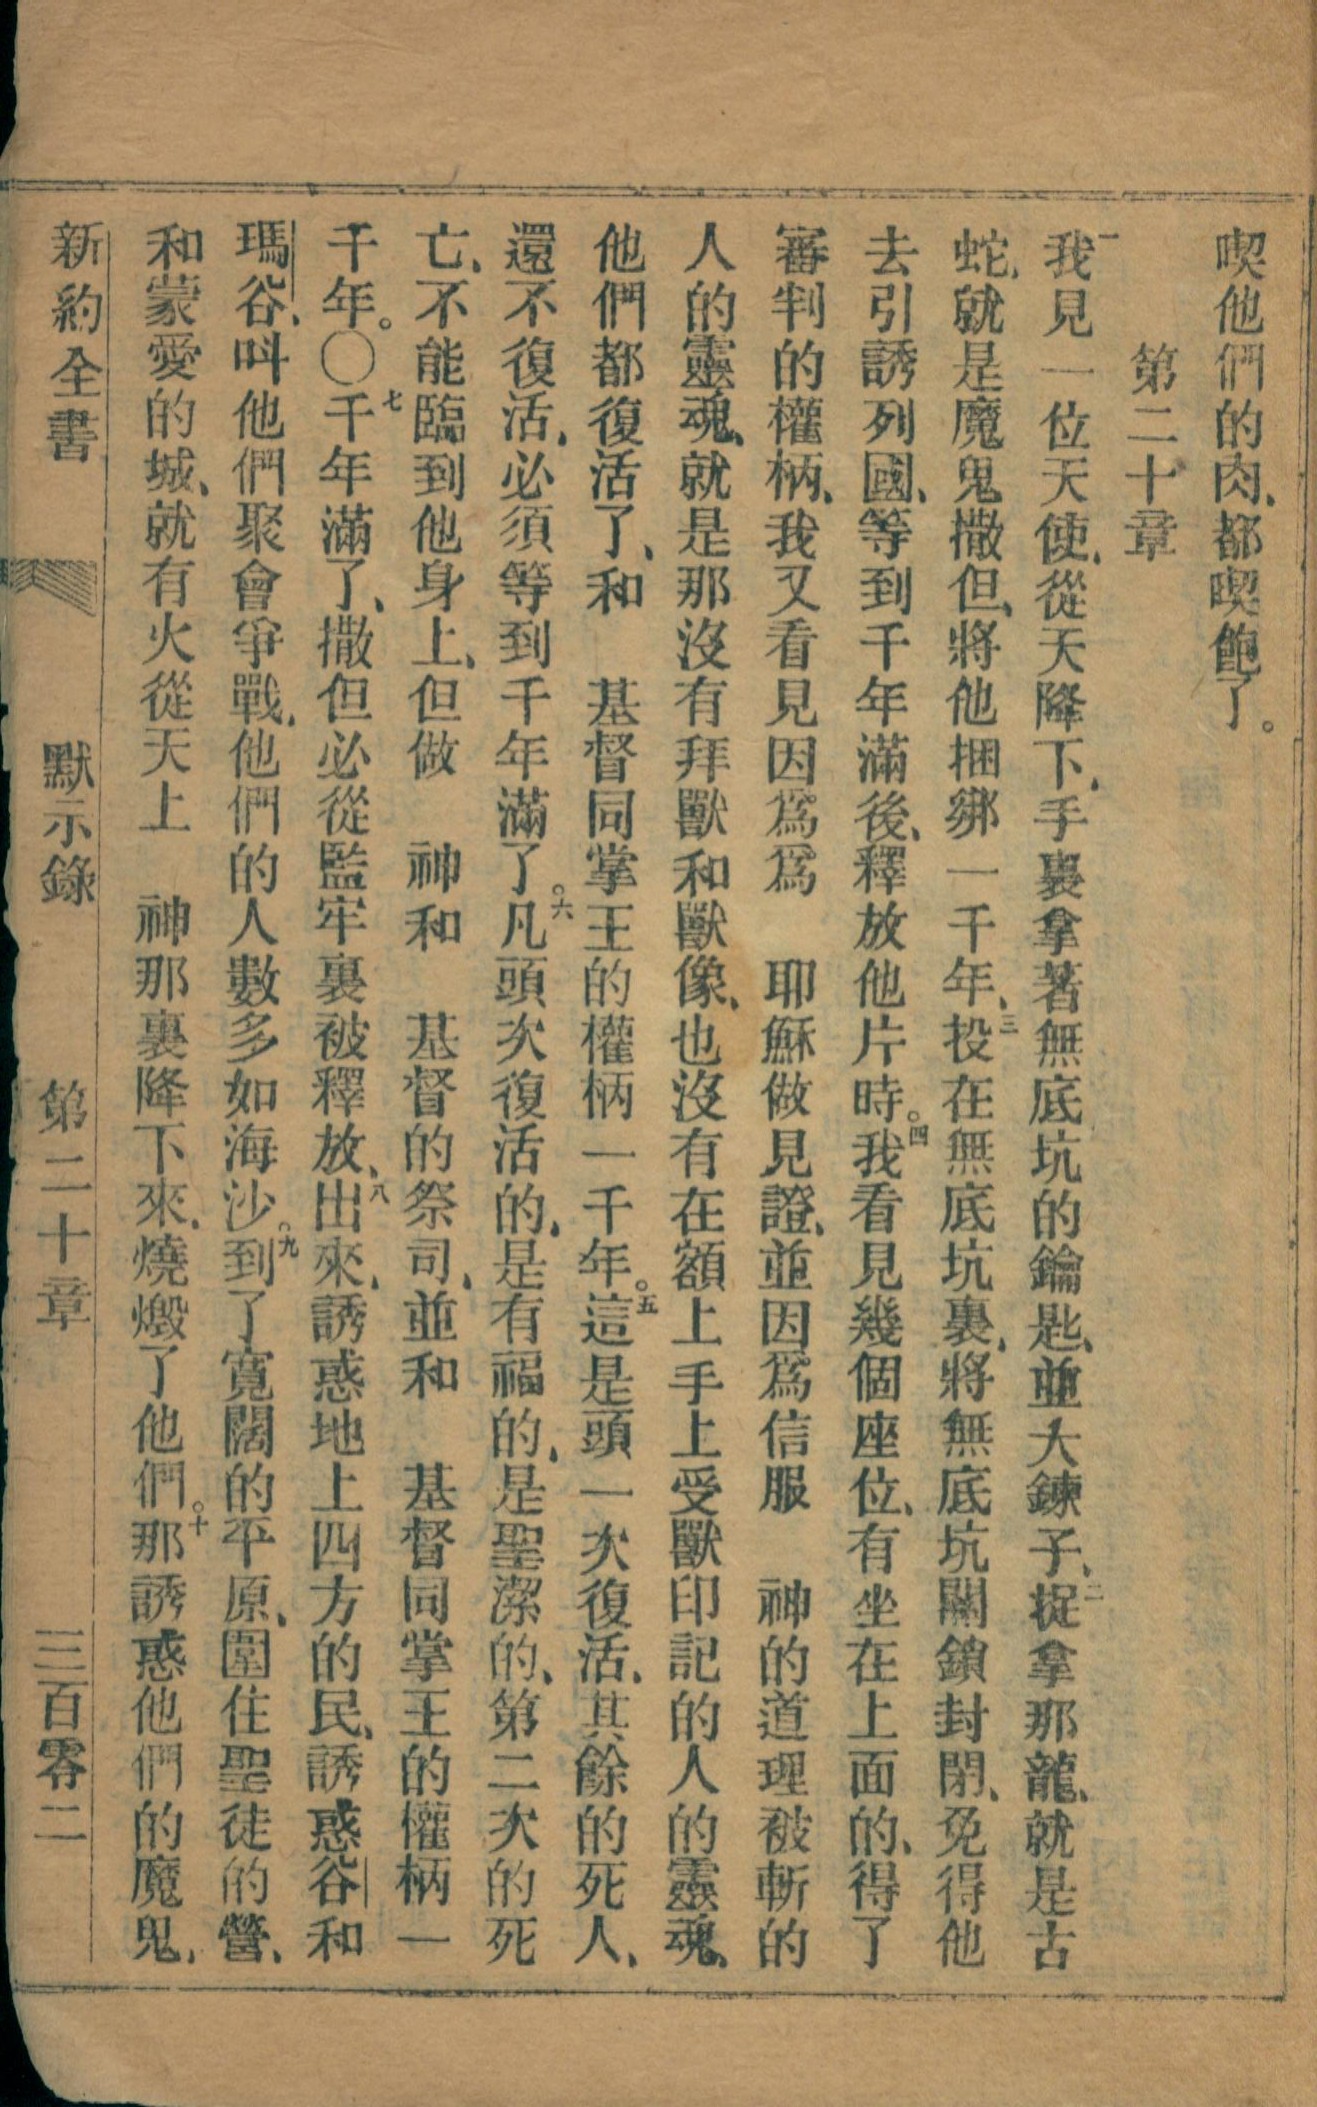 喫他們的肉、都喫飽了。
第二十章
一我見一位天使、從天降下、手裏拿著無底坑的鑰匙、並大鍊子、二捉拿那龍、就是古
蛇、就是魔鬼撒但、將他捆綁一千年、三投在無底坑裏、將無底坑關鎖封閉、免得他
去引誘列國、等到千年滿後、釋放他片時。四我看見幾個座位、有坐在上面的、得了
審判的權柄、我又看見因爲爲　耶穌做見證、並因爲信服　神的道理被斬的
人的靈魂、就是那沒有拜獸和獸像、也沒有在額上手上受獸印記的人的靈魂、
他們都復活了、和　基督同掌王的權柄一千年。五這是頭一次復活、其餘的死人、
還不復活、必須等到千年滿了。六凡頭次復活的、是有福的、是聖潔的、第二次的死
亡、不能臨到他身上、但做　神和　基督的祭司、並和　基督同掌王的權柄一
千年。〇七千年滿了、撒但必從監牢裏被釋放、八出來、誘惑地上四方的民、誘惑谷和
瑪谷、叫他們聚會爭戰、他們的人數多如海沙。九到了寬闊的平原、圍住聖徒的營、
和蒙愛的城、就有火從天上　神那裏降下來、燒燬了他們。十那誘惑他們的魔鬼、
新約全書　默示錄　第二十章　三百零二